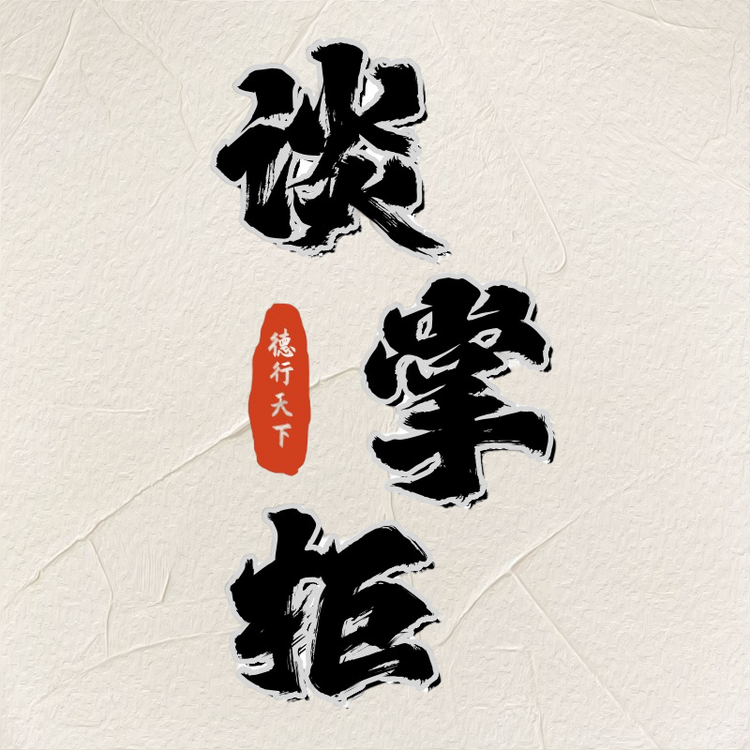 谈
掌
拒
德行天下